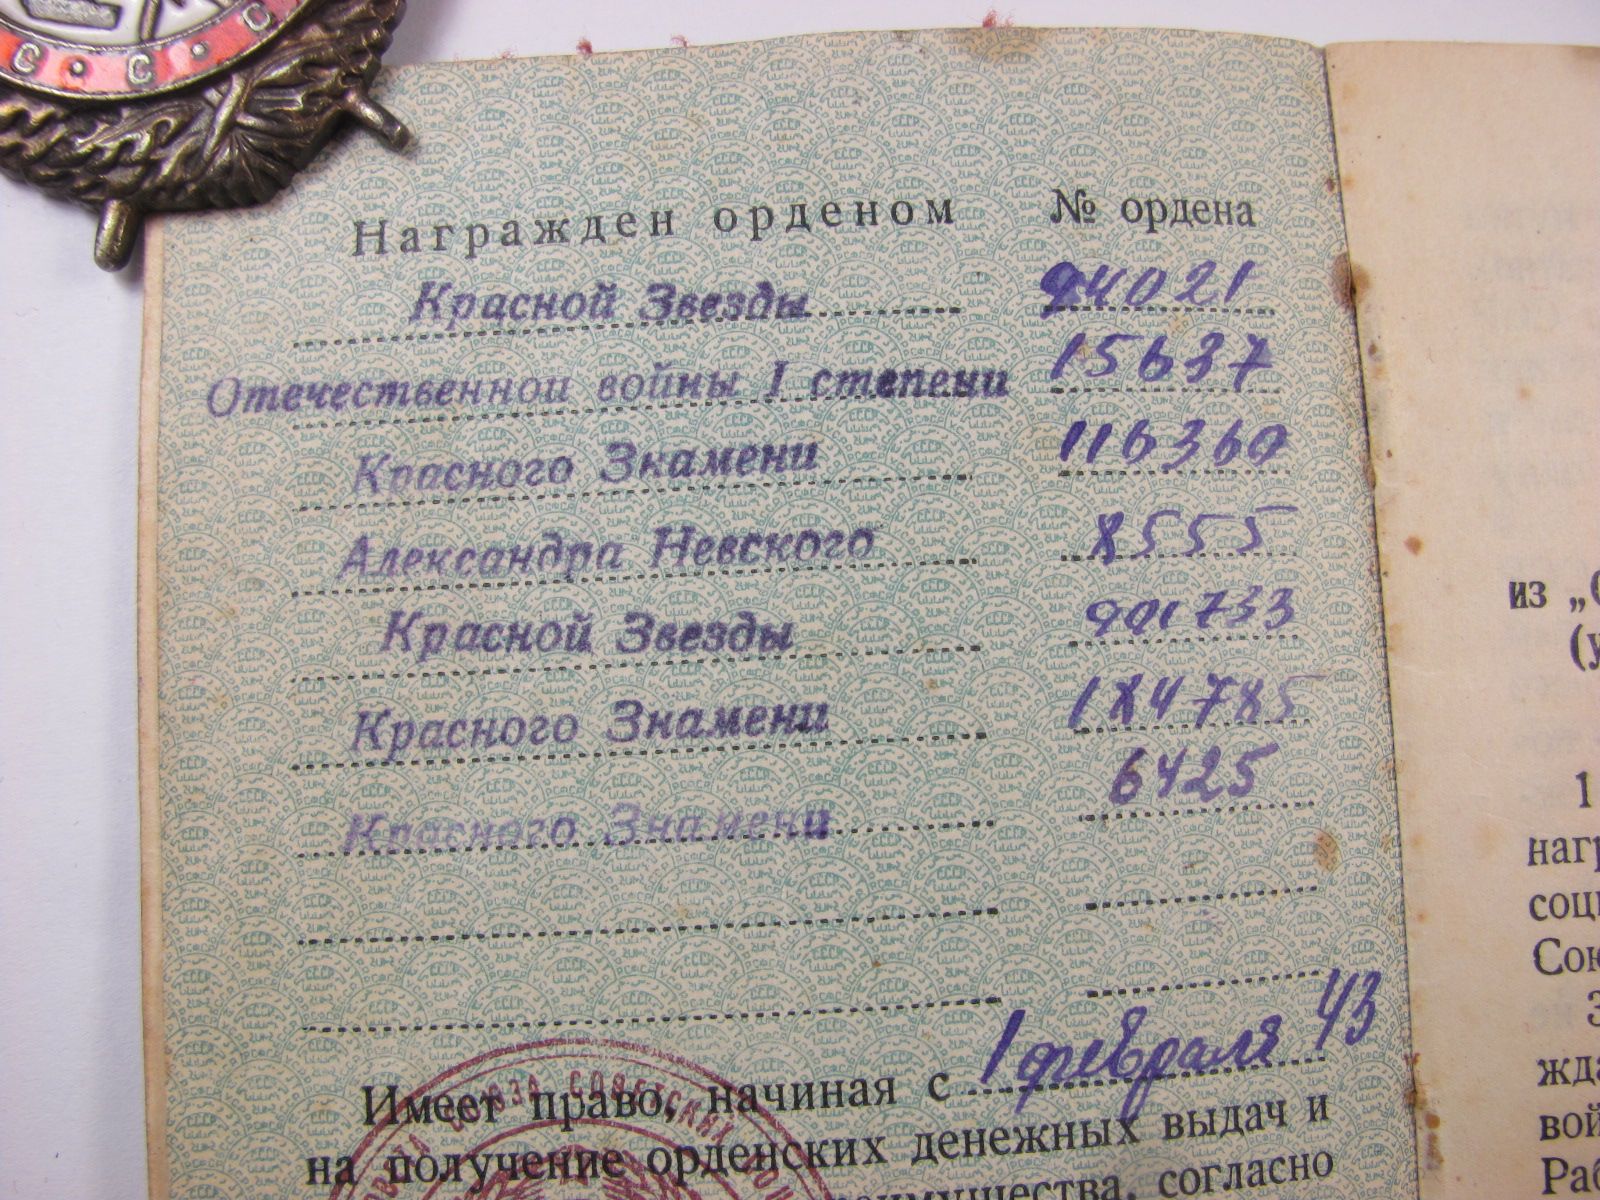 С · С · С
Награжден орденом № ордена
Красной Звезды 94021
Отечественной войны I степени 15637
Красного Знамени 116360
Александра Невского 8555
Красной Звезды 901733
Красного Знамени 184785
Красного Знамени 6425
Имеет право, начиная с 1 февраля 43
на получение орденских денежных выдач и
согласно
СОЮЗА СОВЕТСКИХ
из „
(у
1
наг
соци
Сою
З
жда
вой
Раб